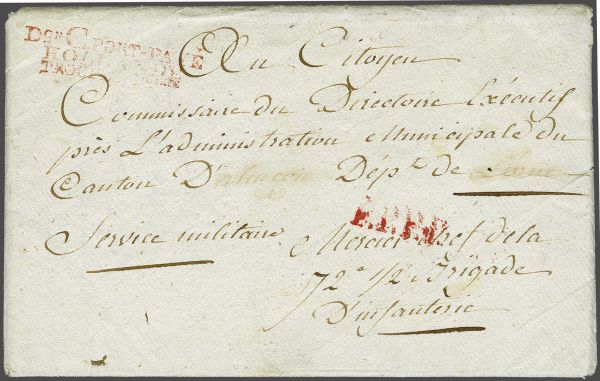 Au Citoyen
Commissaire du Directoire Exécutif
près L'administration Municipale du
Canton D' Dépt. de
Service militaire
Mercier chef de la
72e 1/2 Brigade
D'infanterie